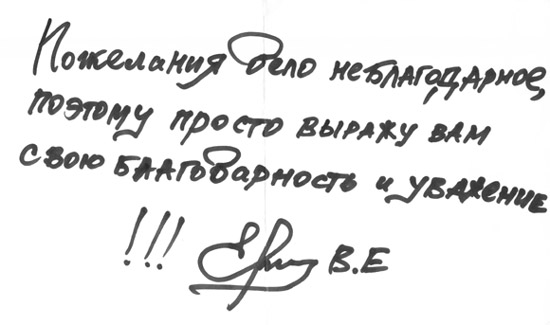 Пожелания дело неблагодарное,
поэтому просто выражу вам
свою благодарность и уважение
!!! В.Е